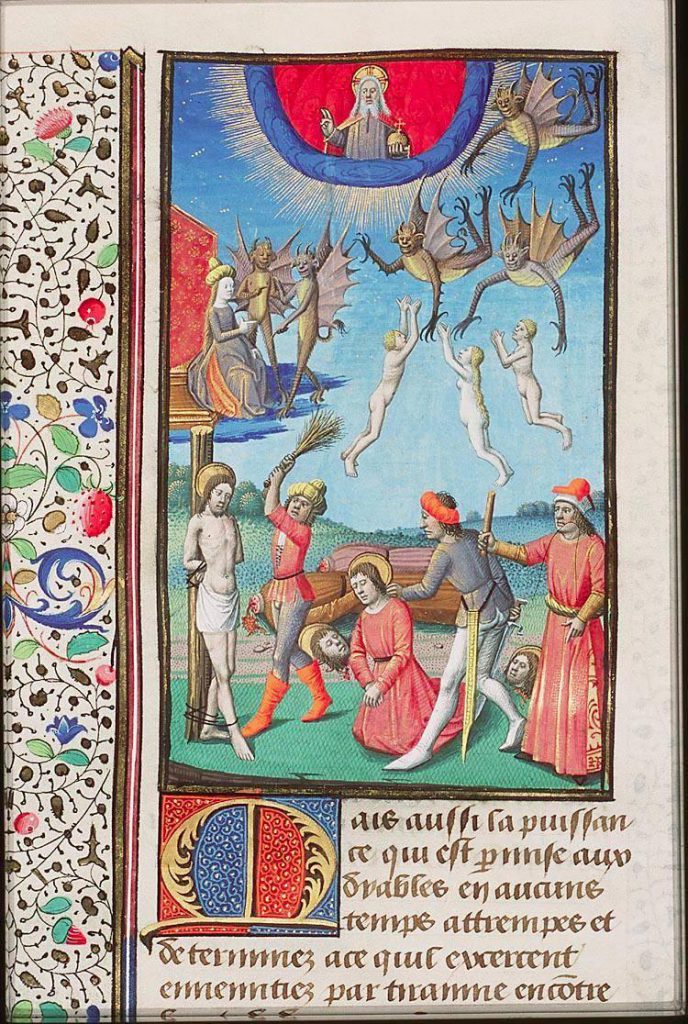 Mais aussi la puissan
ce qui est permise aux
dyables en aucuns
temps attrempes et
determinez a ce quil exercent
ennemitiez par tiramne encōtre